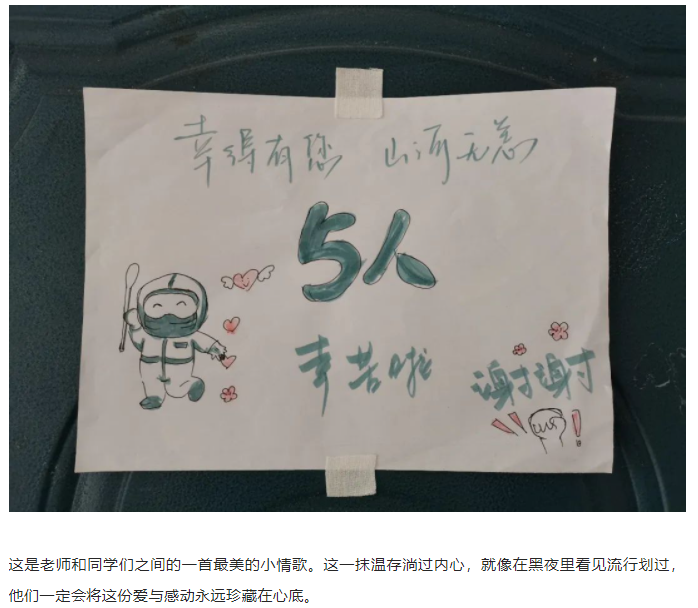 幸得有您 山河无恙
5人
辛苦啦
谢谢
这是老师和同学们之间的一首最美的小情歌。这一抹温存淌过内心，就像在黑夜里看见流行划过，
他们一定会将这份爱与感动永远珍藏在心底。